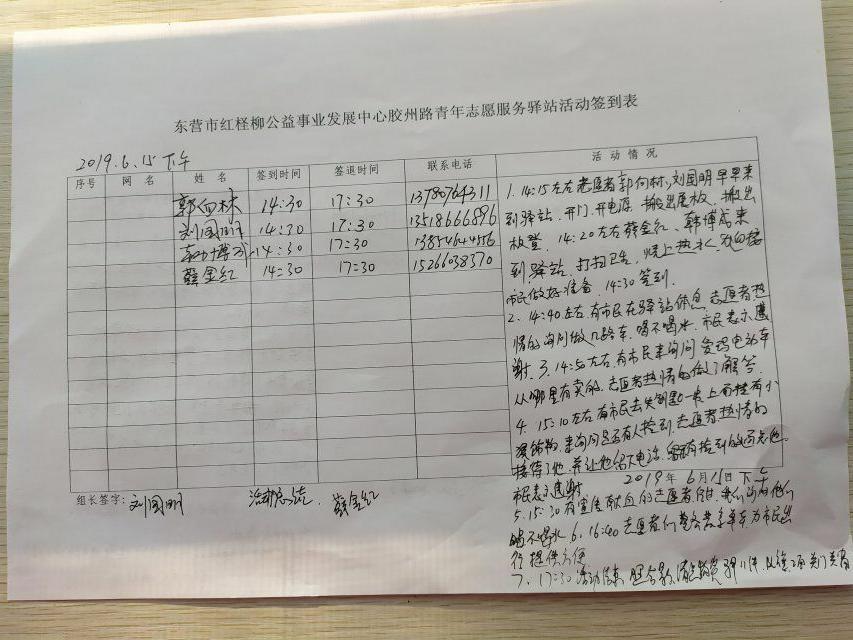 东营市红柽柳公益事业发展中心胶州路青年志愿服务驿站活动签到表
2019.6.15下午
序号 网名 姓名 签到时间 签退时间 联系电话 活动情况
郭向林 14:30 17:30 13780764311
刘国明 14:30 17:30 13518666896
14:30 17:30 13854644556
薛金红 14:30 17:30 15266038370
1. 14:15左右志愿者郭向林、刘国明早早来
到驿站.开门.开电源.搬出展板、搬出
板凳. 14:20左右薛金红、韩博成来
到驿站.打扫卫生,烧上热水,为迎接
市民做好准备. 14:30签到.
2. 14:40左右有市民在驿站休息.志愿者热
情的询问做几路车.喝不喝水.市民表示感
谢. 3. 14:50左右,有市民来询问爱玛电动车
从哪里有卖的.志愿者热情的做了解答.
4. 15:10左右有市民丢失钥匙一串上面挂有小
饰物.来询问是否有人捡到.志愿者热情的
接待了他.并让他留下电话.
市民表示感谢
2019年6月15日下午
5. 15:30有宣传献血的志愿者 我们询问他们
喝不喝水. 6. 16:40志愿者们整合共享单车为市民出
行提供方便
7. 17:30活动结束
组长签字: 刘国明 薛金红